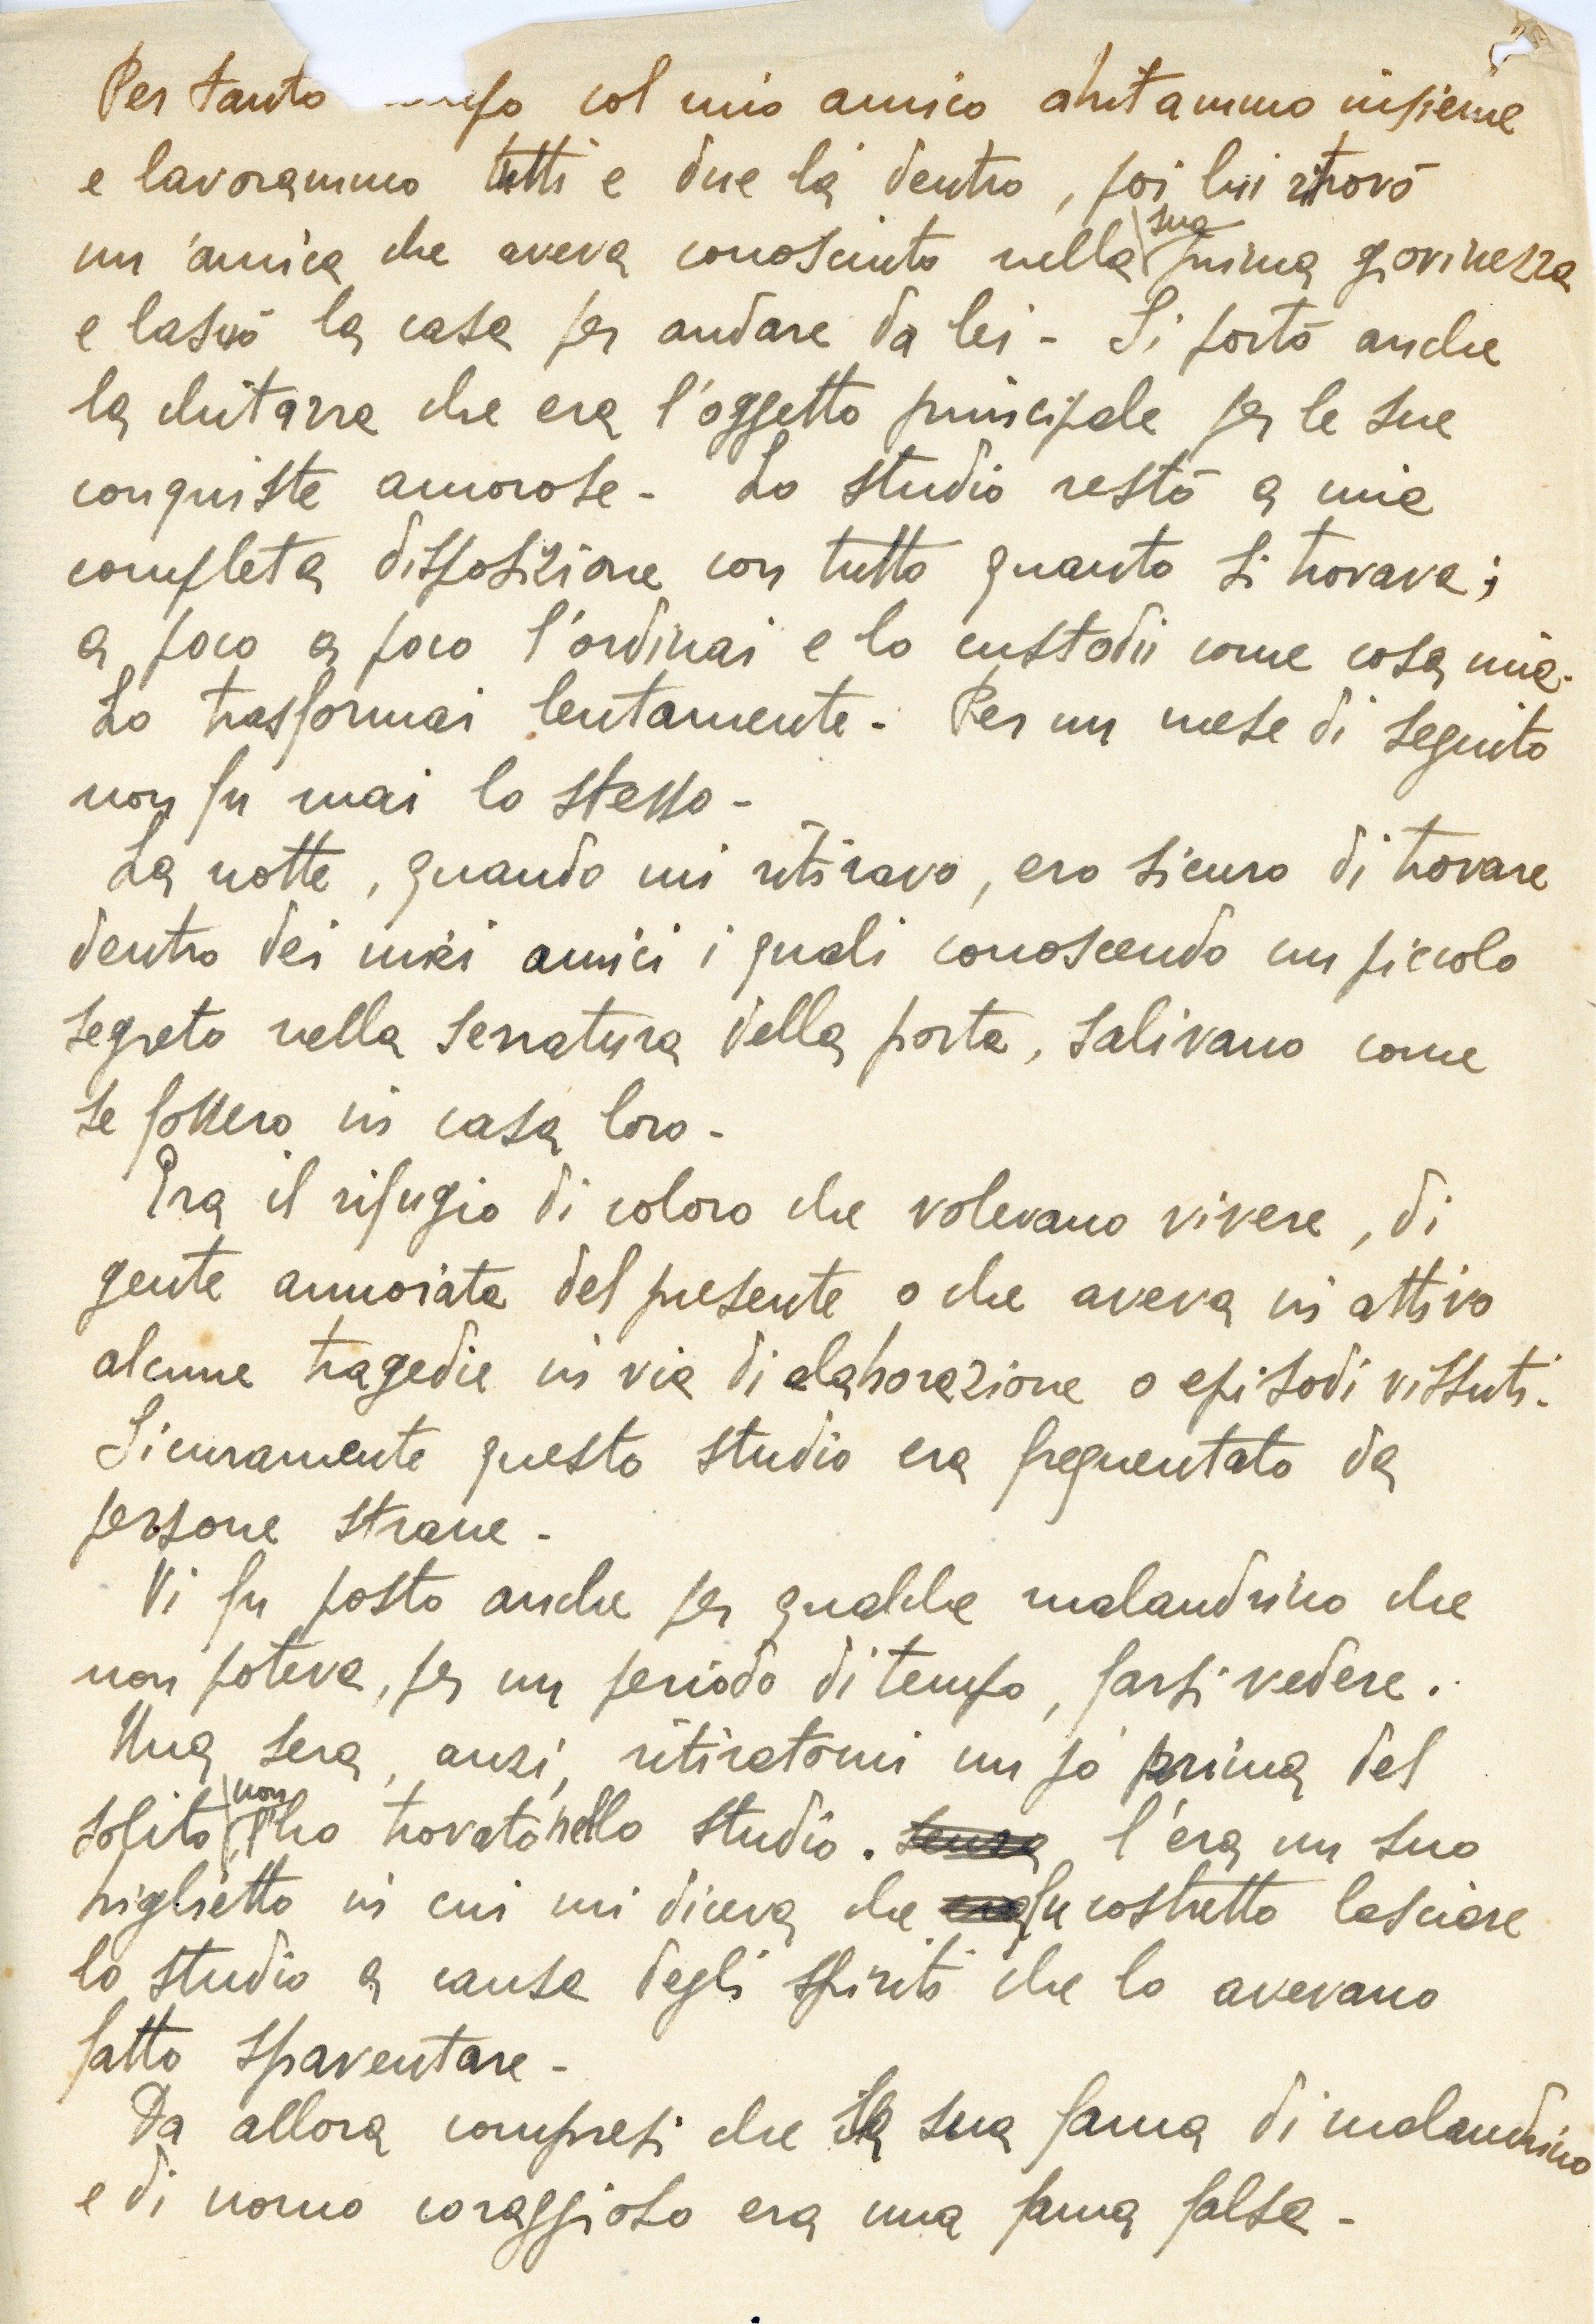 Per tanto col mio amico abitammo insieme
e lavorammo tutti e due là dentro, poi lui ritrovò
un'amica che aveva conosciuto nella sua prima giovinezza
e lasciò la casa per andare da lei - Si portò anche
la chitarra che era l'oggetto principale per le sue
conquiste amorose - Lo studio restò a mia
completa disposizione con tutto quanto si trovava;
a poco a poco l'ordinai e lo custodii come cosa mia.
Lo trasformai lentamente - Per un mese di seguito
non fu mai lo stesso -
La notte, quando mi ritiravo, ero sicuro di trovare
dentro dei miei amici i quali conoscendo un piccolo
segreto nella serratura della porta, salivano come
se fossero in casa loro -
Era il rifugio di coloro che volevano vivere, di
gente annoiata del presente o che aveva in attivo
alcune tragedie in via di elaborazione o episodi vissuti -
Sicuramente questo studio era frequentato da
persone strane -
Vi fu posto anche per qualche malandrino che
non poteva, per un periodo di tempo, farsi vedere.
Una sera, anzi, ritiratomi un pò prima del
solito, non l'ho trovato nello studio. senza C'era un suo
biglietto in cui mi diceva che era fu costretto lasciare
lo studio a causa degli spiriti che lo avevano
fatto spaventare -
Da allora compresi che la sua fama di malandrino
e di uomo coraggioso era una fama falsa -